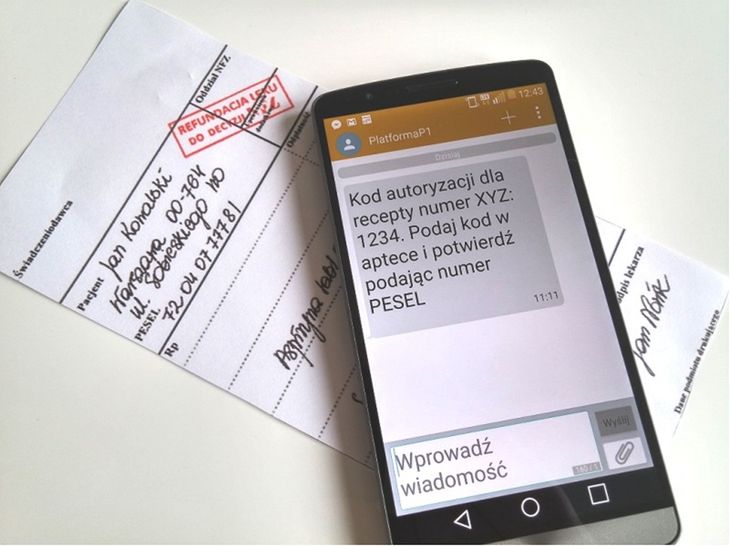 Świadczeniodawca
Oddział NFZ
REFUNDACJA LEKU
DO DECYZJI
Odpłatność
Pacjent
Jan Kowalski
Warszawa 00-764
ul. Sobieskiego 110
PESEL
72 04 07 77781
Rp
Aspiryna
12:43
PlatformaP1
Dzisiaj
Kod autoryzacji dla
recepty numer XYZ:
1234. Podaj kod w
aptece i potwierdź
podając numer
PESEL
11:11
Wprowadź
wiadomość
Wyślij
160 / 1
Jan
Dane podmiotu drukującego